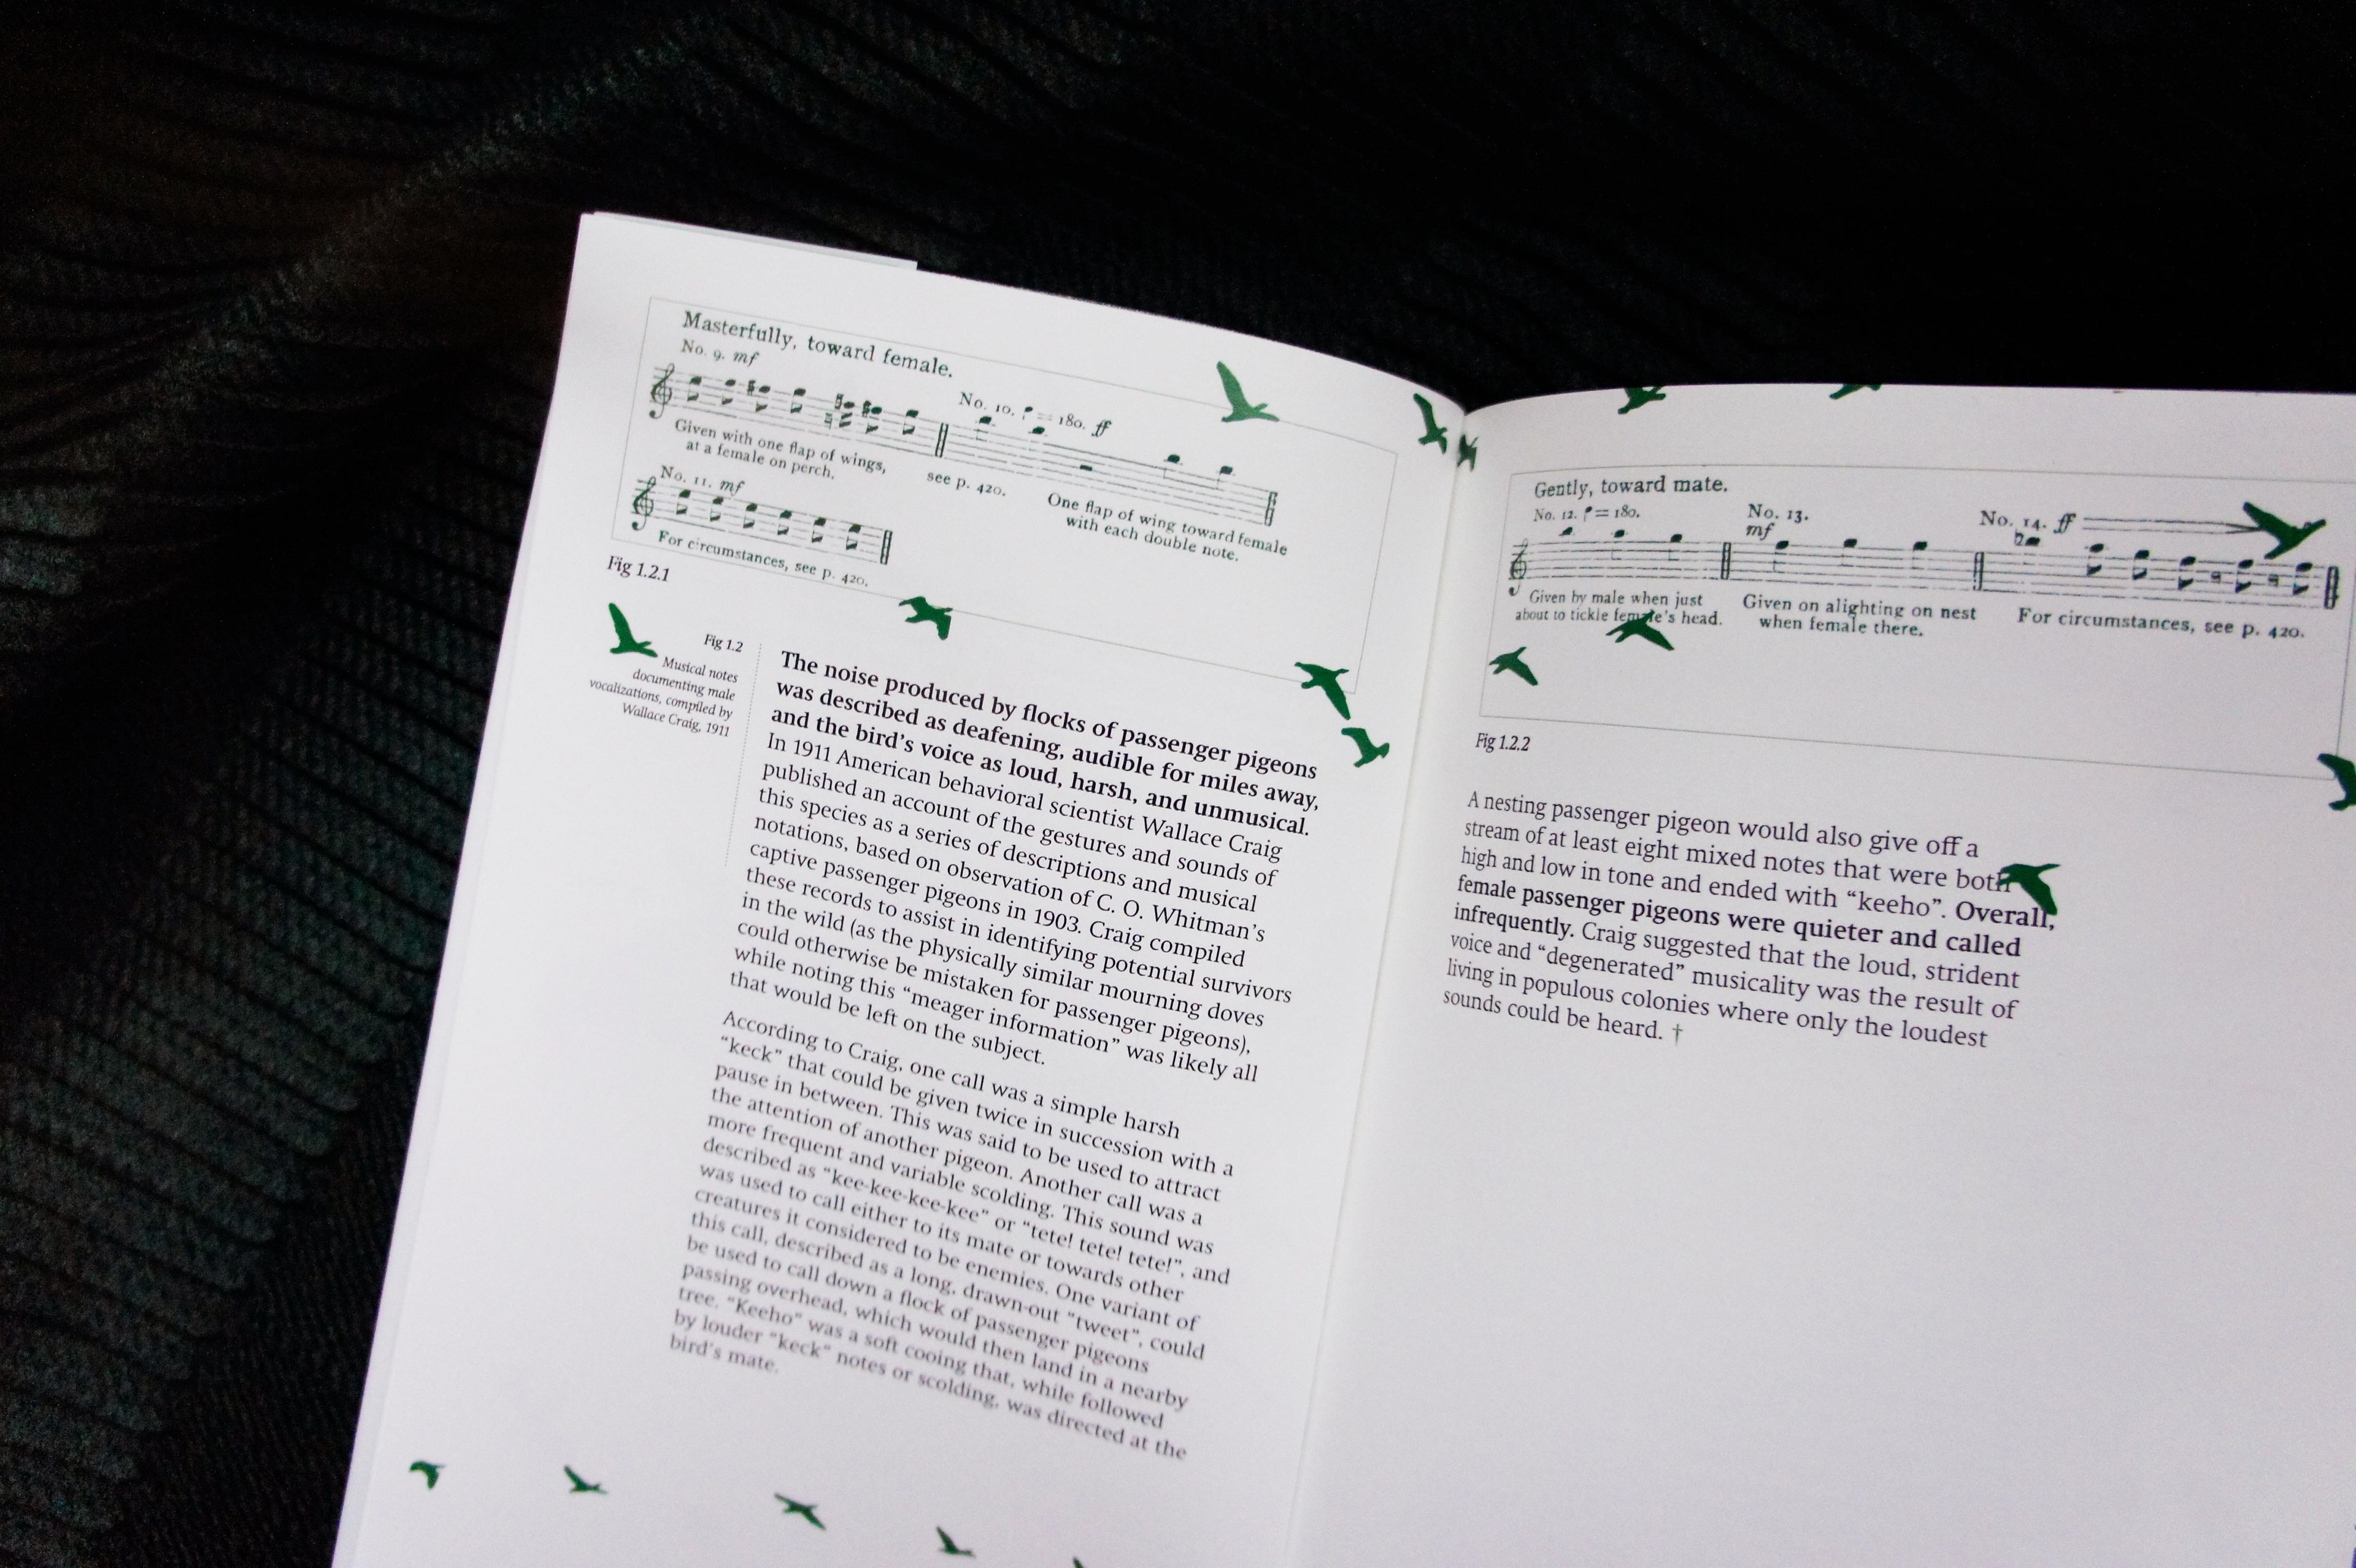 Masterfully, toward female.
No. 9. mf
No. 10. = 180. ff
Given with one flap of wings,
at a female on perch.
see p. 420.
One flap of wing toward female
with each double note.
No. 11. mf
For circumstances, see p. 420.
Fig 1.2.1
Fig 1.2
Musical notes
documenting male
vocalizations, compiled by
Wallace Craig, 1911
The noise produced by flocks of passenger pigeons
was described as deafening, audible for miles away,
and the bird's voice as loud, harsh, and unmusical.
In 1911 American behavioral scientist Wallace Craig
published an account of the gestures and sounds of
this species as a series of descriptions and musical
notations, based on observation of C. O. Whitman's
captive passenger pigeons in 1903. Craig compiled
these records to assist in identifying potential survivors
in the wild (as the physically similar mourning doves
could otherwise be mistaken for passenger pigeons),
while noting this “meager information” was likely all
that would be left on the subject.
According to Craig, one call was a simple harsh
“keck” that could be given twice in succession with a
pause in between. This was said to be used to attract
the attention of another pigeon. Another call was a
more frequent and variable scolding. This sound was
described as “kee-kee-kee-kee” or “tete! tete! tete!”, and
was used to call either to its mate or towards other
creatures it considered to be enemies. One variant of
this call, described as a long, drawn-out “tweet”, could
be used to call down a flock of passenger pigeons
passing overhead, which would then land in a nearby
tree. “Keeho” was a soft cooing that, while followed
by louder “keck” notes or scolding, was directed at the
bird's mate.
Gently, toward mate.
No. 12. = 180.
No. 13.
mf
No. 14. ff
Given by male when just
about to tickle female's head.
Given on alighting on nest
when female there.
For circumstances, see p. 420.
Fig 1.2.2
A nesting passenger pigeon would also give off a
stream of at least eight mixed notes that were both
high and low in tone and ended with “keeho”. Overall,
female passenger pigeons were quieter and called
infrequently. Craig suggested that the loud, strident
voice and “degenerated” musicality was the result of
living in populous colonies where only the loudest
sounds could be heard. †